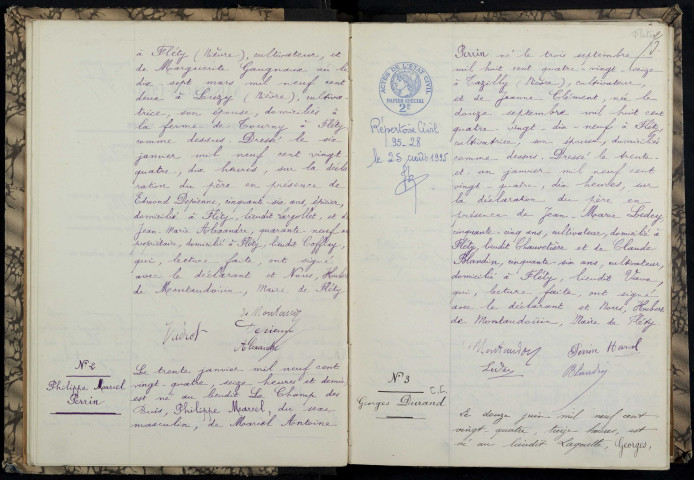 à Fléty (Nièvre), cultivateur, et
de Marguerite Gaugneaux née le
dix sept mars mil neuf cent
deux à Luzy (Nièvre), cultiva-
trice, son épouse, domiciliés à
la ferme de Tourny à Fléty
comme dessus. Dressé le six
janvier mil neuf cent vingt
quatre, dix heures, sur la décla-
ration du père en présence de
Edmond Dessienne, cinquante six ans, épicier,
domicilié à Fléty, lieudit et de
Jean Marie Alexandre, quarante neuf ans
propriétaire, domicilié à Fléty, lieudit
qui, lecture faite, ont signé
avec le déclarant et Nous, Hubert
de Montaudoüin, Maire de Fléty
de Montaudoüin
Alexandre
N° 2
Philippe Marcel
Perrin
Le trente janvier mil neuf cent
vingt-quatre, seize heures et demie,
est né au lieudit Le Champ des
Buis, Philippe Marcel, du sexe
masculin, de Marcel Antoine
ACTES DE L'ETAT CIVIL
PAPIER SPECIAL
2F
Répertoire Civil
95-28
le 25 1995
Perrin né le trois septembre
mil huit cent quatre-vingt-seize
à Tazilly (Nièvre), cultivateur,
et de Jeanne Clément, née le
douze septembre mil huit cent
quatre-vingt-dix neuf à Fléty,
cultivatrice, son épouse, domiciliés
comme dessus. Dressé le trente
et un janvier mil neuf cent
vingt-quatre, dix heures, sur
la déclaration du père en
présence de Jean-Marie Ledey,
cinquante-cinq ans, cultivateur, domicilié à
Fléty, lieudit et de Claude
Blandin, cinquante-six ans, cultivateur,
domicilié à Fléty, lieudit
qui, lecture faite, ont signé
avec le déclarant et Nous, Hubert
de Montaudoüin, Maire de Fléty
de Montaudoüin Perrin Marcel
Ledey Blandin
N° 3
Georges Durand
Le douze juin mil neuf cent
vingt-quatre, treize heures, est
né au lieudit Georges,